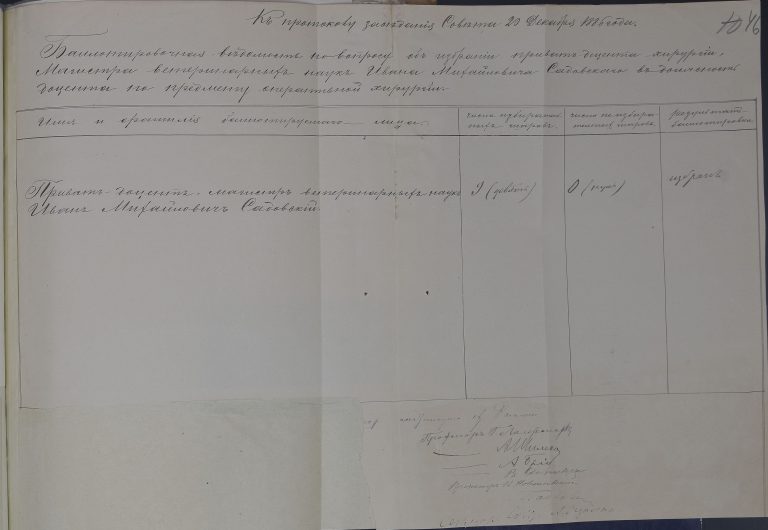 Къ протоколу засѣданія Совѣта 20 Декабря 1886 года.
46
Баллотировочная вѣдомость по вопросу объ избраніи приватъ-доцента хирургіи,
Магистра ветеринарныхъ наукъ Ивана Михайловича Садовскаго въ должность
доцента по предмету оперативной хирургіи.
Имя и фамилія баллотируемаго лица.
число избирательныхъ шаровъ.
число неизбирательныхъ шаровъ
результатъ баллотировки
Приватъ-доцентъ, магистръ ветеринарныхъ наукъ
Иванъ Михайловичъ Садовскій.
9 (девять)
0 (нуль)
избранъ
Профессоръ
А.